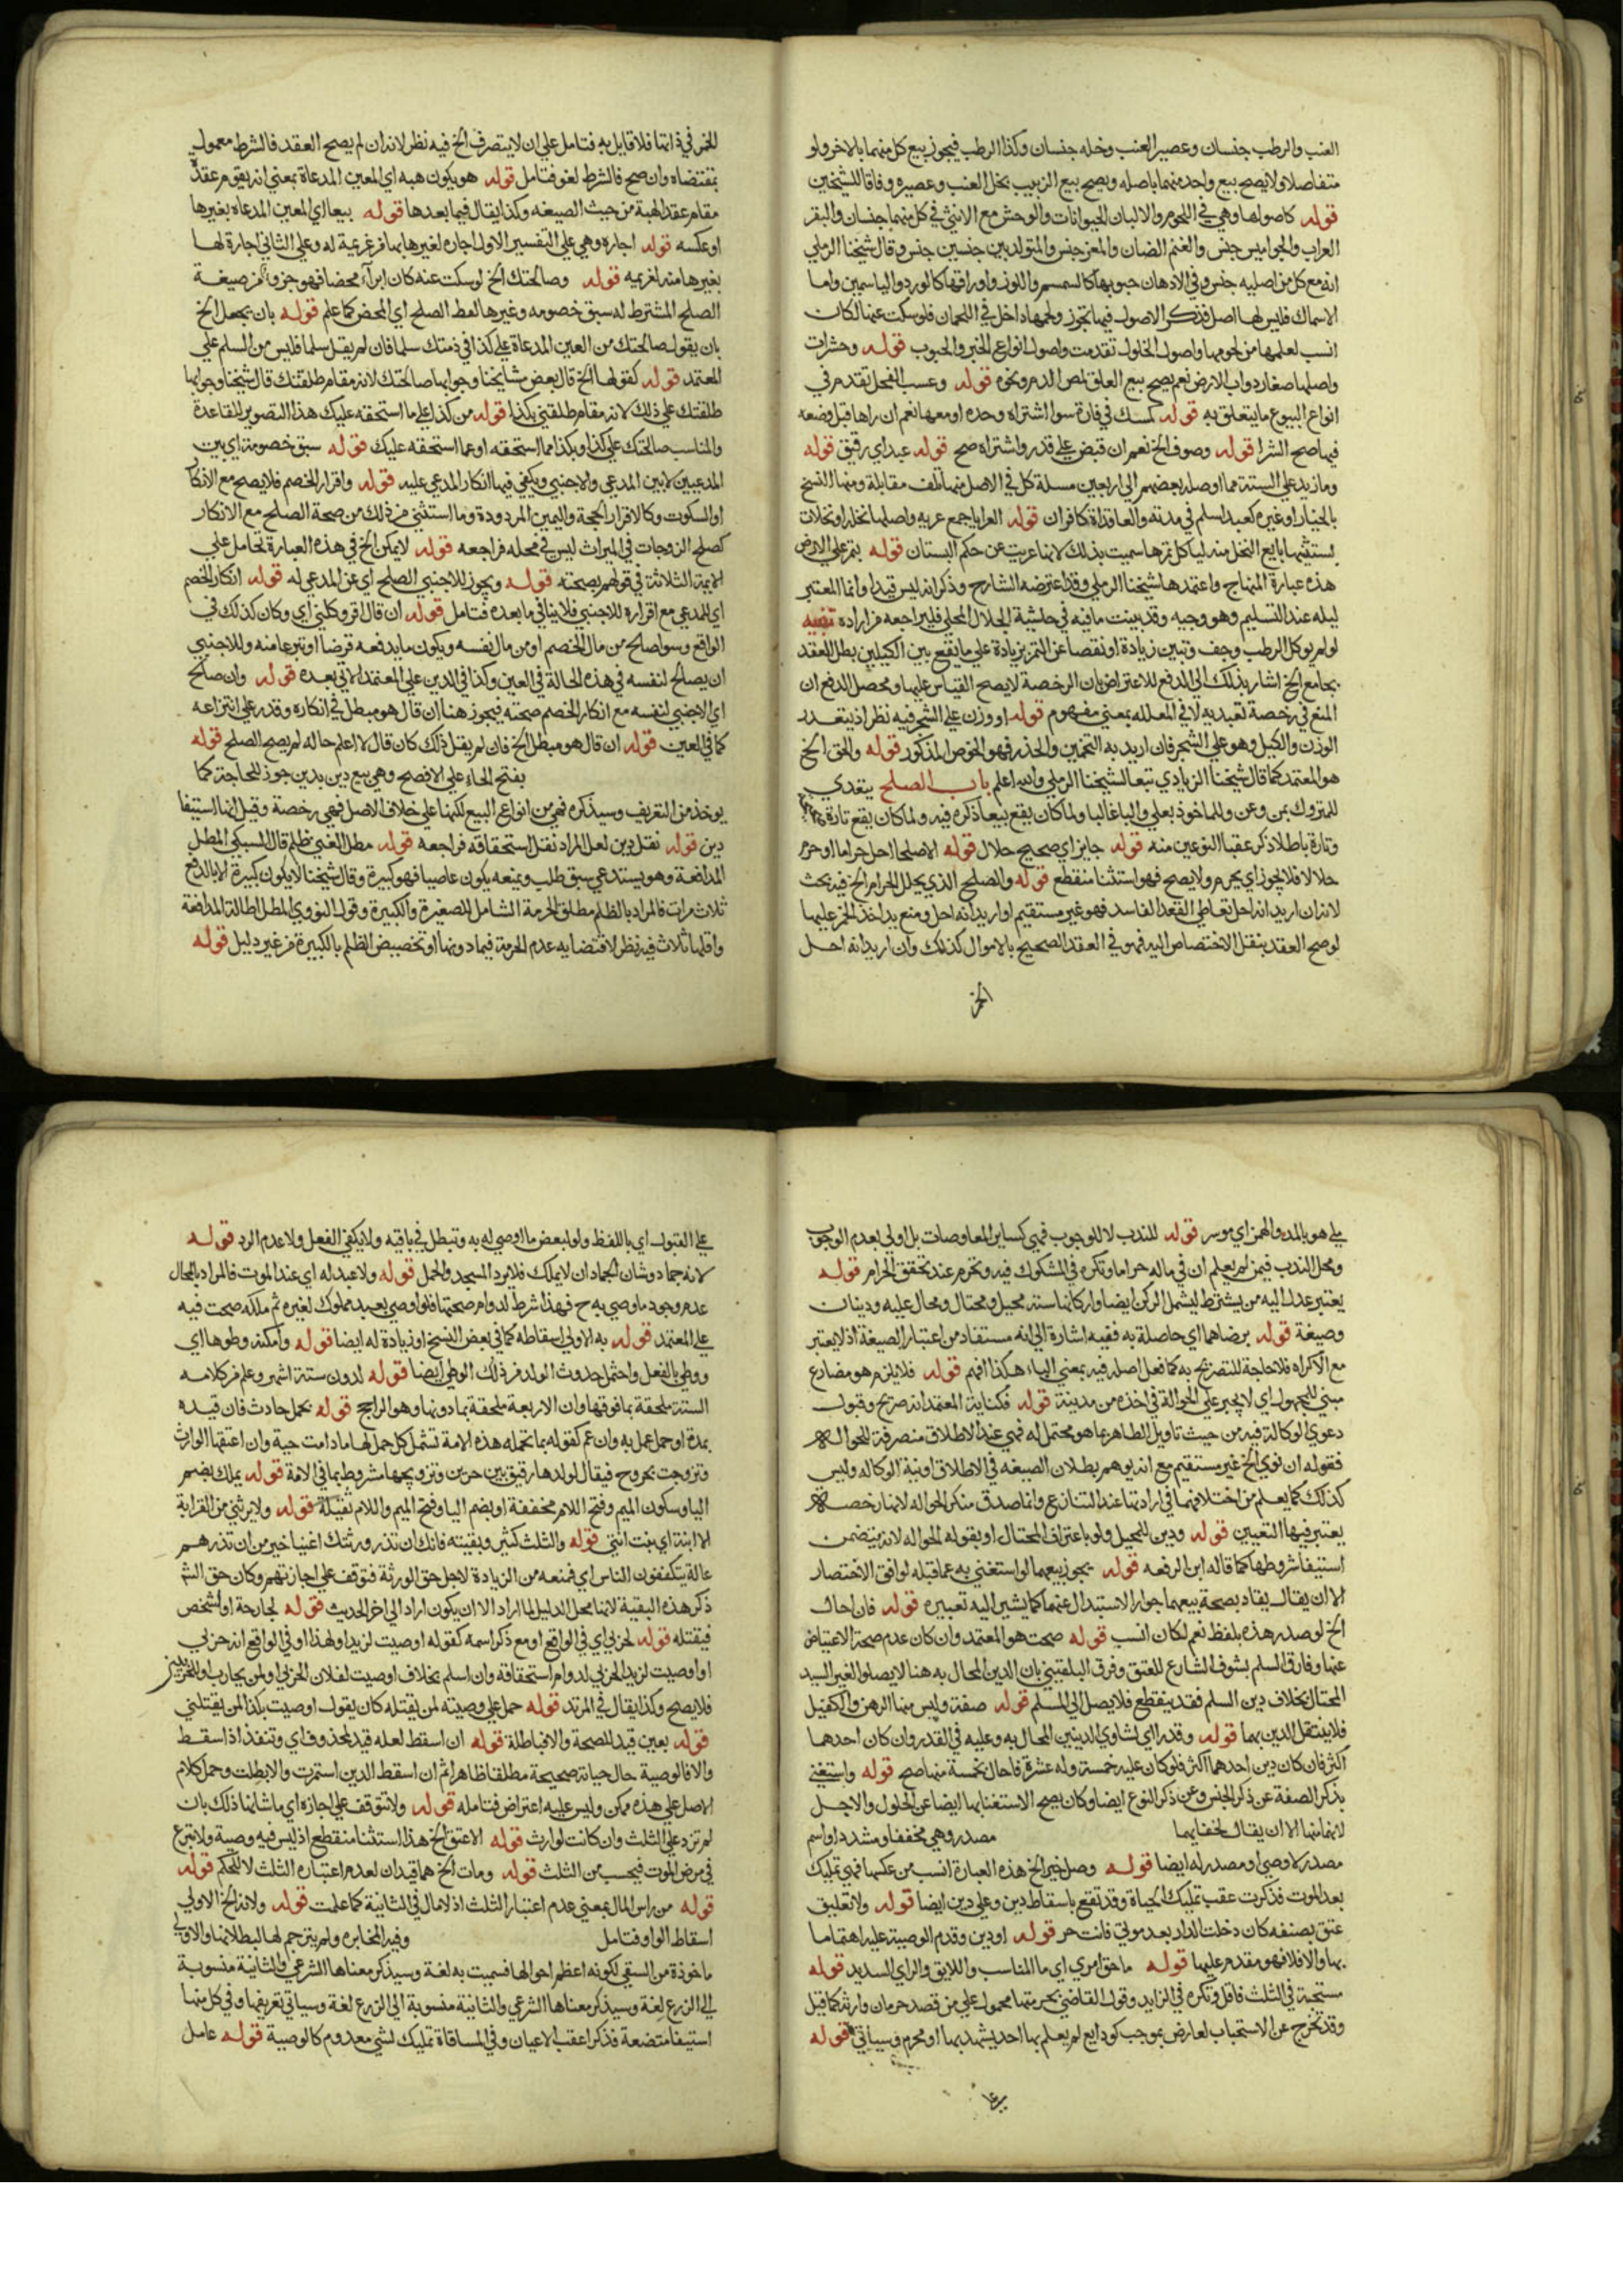 العنب والرطب جنسان وعصير العنب وخله جنسان وكذا الرطب فيجوز بيع كل منهما بالاخر ولو
متفاضلا ولا يصح بيع واحد منهما باصله ويصح بيع الزبيب بخل العنب وعصيره وفاقا للشيخين
قوله كاصولها وهي في اللحوم والالبان الحيوانات والوحش مع الانثى في كل منهما جنسان والبقر
العراب والجواميس جنس والغنم الضان والمعز جنس والمتولد بين جنسين جنس وقال شيخنا الرملي
انه مع كل من اصليه جنس وفي الادهان حبوبها كالسمسم واللوز واوراقها كالورد والياسمين واما
الاسماك فليس لها اصل فذكر الاصول فيما تجوز ولحمها داخل في اللحمان فلو سكت عنها لكان
انسب لعلمها من لحومها واصول الخلول تقدمت واصول انواع الخبز والحبوب قوله وحشرات
واصلها صغار دواب الارض نعم يصح بيع العلق لمص الدم ونحوه قوله وعسب الفحل تقدم في
انواع البيوع ما يتعلق به قوله كمسك في فارة سوا اشتراه وحده او معها نعم ان راها قبل وضعه
فيها صح الشرا قوله وصوف الخ نعم ان قبض على قدر واشتراه صح قوله عبد اي رقيق قوله
وما زيد على الستة مما اوصله بعضهم الى اربعين مسلة كل في الاصل منها تلف مقابلة ومنها الفسخ
بالخيار او غيره كعبد اسلم في مدته والعاقدان كافران قوله العرايا جمع عرية واصلها نخلة او نخلات
يستثنيها بايع النخل منه لياكل ثمرها سميت بذلك لانها عريت عن حكم البستان قوله بتمر على الارض
هذه عبارة المنهاج واعتمدها شيخنا الرملي وقد اعترضه الشارح وذكر انه ليس قيدا وانما المعتبر
ليله عند التسليم وهو وجيه وقد بينت ما فيه في حاشية الجلال المحلي فليراجعه من اراده تنبيه
لو لم يوكل الرطب وجف وتبين زيادة او نقصا عن التمر بزيادة على ما يقع بين الكيلين بطل العقد
بجامع الخ اشار بذلك الى الدفع للاعتراض بان الرخصة لا يصح القياس عليها ومحصل الدفع ان
المنع في رخصة تعبدية لا في المعلله بمعنى مفهوم قوله او وزن على الشجر فيه نظر اذ يتعذر
الوزن والكيل وهو على الشجر فان اريد به التخمين والحذر فهو الخرص المذكور قوله والحق الخ
هو المعتمد كما قال شيخنا الزيادي تبعا لشيخنا الرملي والله اعلم باب الصلح يتعدي
للمتروك بمن وعن وللماخوذ بعلى والبا غالبا ولما كان يقع بيعا ذكره فيه ولما كان يقع تارة
وتارة باطلا ذكر عقبا النوعين منه قوله جايز اي صحيح حلال قوله الا صلحا احل حراما او حرم
حلالا فلا يجوز اي يحرم ولا يصح فهو استثنا منقطع قوله والصلح الذي يحلل الحرام الخ فيه بحث
لانه ان اريد انه احل تعاطي العقد الفاسد فهو غير مستقيم او اريد انه احل ومنع يد اخذ الخمر عليها
لو صح العقد بنقل الاختصاص اليه فهو في العقد الصحيح بالاموال كذلك وان اريد انه احل
الخمر
الخمر في ذاتها فلا قايل به فتامل على ان لا يتصرف الخ فيه نظر لانه ان لم يصح العقد فالشرط معمول
بمقتضاه وان صح فالشرط لغو فتامل قوله هو يكون هبه اي المعين المدعاة بمعنى انه يقوم عقد
مقام عقد الهبة من حيث الصيغه وكذا يقال فيما بعدها قوله بيعا اي المعين المدعاه بغيرها
او عكسه قوله اجاره وهي على التفسير الاول اجارة لغيرها بها من غريمة له وعلى الثاني اجارة لها
بغيرها منه لغريمه قوله وصالحتك الخ لو سكت عنه كان ابرآ محضا فهو جزو من صيغة
الصلح المشترط له سبق خصومه وغيرها لفظ الصلح اي المحض كما علم قوله بان يجعل الخ
بان يقول صالحتك من العين المدعاة على كذا في ذمتك سلما فان لم يقل سلما فليس من السلم على
المعتمد قوله كقولها الخ قال بعض مشايخنا وجوابها صالحتك لانه مقام طلقتك قال شيخنا وجوابها
طلقتك على ذلك لانه مقام طلقني بكذا قوله من كذا على ما استحقه عليك هذا التصوير للقاعدة
والمناسب صالحتك على كذا وبكذا مما استحقه او عما استحقه عليك قوله سبق خصومة اي بين
المدعيين لا بين المدعي والاجنبي ويكفي فيها انكار المدعى عليه قوله واقرار الخصم فلا يصح مع الانكار
او السكوت وكالاقرار الحجة واليمين المردودة وما استثني من ذلك من صحة الصلح مع الانكار
كصلح الزوجات في الميراث ليس في محله فراجعه قوله لا يمكن الخ في هذه العبارة تحامل على
الايمة الثلاثة في قولهم بصحته قوله ويجوز للاجنبي الصلح اي عن المدعى له قوله انكار الخصم
اي للمدعي مع اقراره للاجنبي فلا ينافي ما بعده فتامل قوله ان قال اقر وكلني اي وكان كذلك في
الواقع وسوا صالح من مال الخصم او من مال نفسه ويكون ما يدفعه قرضا او تبرعا منه وللاجنبي
ان يصالح لنفسه في هذه الحالة في العين وكذا في الدين على المعتمد الاتي بعده قوله وان صالح
اي الاجنبي لنفسه مع انكار الخصم صحته فيجوز هنا ان قال هو مبطل في انكاره وقدر على انتزاعه
كما في العين قوله ان قال هو مبطل الخ فان لم يقل ذلك كان قال لا اعلم حاله لم يصح الصلح قوله
بفتح الحاء على الافصح وهي بيع دين بدين جوز للحاجة كما
يوخذ من التعريف وسيذكره فهي من انواع البيع لكنها على خلاف الاصل فهي رخصة وقيل انها استيفا
دين قوله نقل دين لعل المراد نقل استحقاقه فراجعه قوله مطل الغني ظلم قال السبكي المطل
المدافعة وهو يستدعي سبق طلب وبمنعه يكون عاصيا فهو كبيرة وقال شيخنا لا يكون كبيرة الا بالدفع
ثلاث مرات فالمراد بالظلم مطلق الحرمة الشامل للصغيرة والكبيرة وقول النووي المطل اطالة المدافعة
واقلها ثلاث فيه نظر لاقتضايه عدم الحرمة فيما دونها او تخصيص الظلم بالكبيرة من غير دليل قوله
ملي هو بالمد والهمز اي موسر قوله للندب لا للوجوب فهي كساير المعاوضات بل اولى بعدم الوجوب
ومحل الندب فيمن لم يعلم ان في ماله حراما وتكره في المشكوك فيه وتحرم عند تحقق الحرام قوله
يعتبر عدل اليه من يشترط ليشمل الركن ايضا واركانها ستة محيل ومحتال ومحال عليه ودينان
وصيغة قوله برضاهما اي حاصلة به ففيه اشارة الى انه مستفاد من اعتبار الصيغة اذ لا يعتبر
مع الاكراه فلا حاجة للتصريح به كما فعل اصله فيه بمعنى الباء هكذا افهم قوله فلا يلزم هو مضارع
مبني للمجهول اي لا يجبر على الحوالة في اخذه من مدينة قوله فكناية المعتمد انه صريح وقبول
دعوى الوكالة فيه من حيث تاويل الظاهر عما هو محتمل له فهي عند الاطلاق منصرفة للحوالة
فقوله ان نوى الخ غير مستقيم مع انه يوهم بطلان الصيغه في الاطلاق او نية الوكاله وليس
كذلك كما يعلم من اختلافهما في ارادتها عند التنازع وانما صدق منكر الحواله لانها رخصة
يعتبر فيها التعيين قوله ودين للمحيل ولو باعتراف المحتال او بقوله الحواله لانه يتضمن
استيفا شروطها كما قاله ابن الرفعه قوله يجوز بيعهما لو استغنى به عما قبله لوافق الاختصار
الا ان يقال يقاد بصحة بيعهما جواز الاستبدال عنهما كما يشير اليه تعبيره قوله فان احال
الخ لو صدر هذه بلفظ نعم لكان انسب قوله صحت هو المعتمد وان كان عدم صحة الاعتياض
عنها وفارق السلم بتشوف الشارع للعتق وفرق البلقيني بان الدين المحال به هنا لا يصل لغير السيد
المحتال بخلاف دين السلم فقد ينقطع فلا يصل الى المسلم قوله صفة وليس منها الرهن والكفيل
فلا ينتقل الدين بهما قوله وقدرا اي لتساوي الدينين المحال به وعليه في القدر وان كان احدهما
اكثر فان كان دين احدهما اكثر فلو كان عليه خمسة وله عشرة فاحال بخمسة منها صح قوله واستغنى
بذكر الصفة عن ذكر الجنس وعن ذكر النوع ايضا وكان يصح الاستغنا بها ايضا عن الحلول والاجل
لانهما منها الا ان يقال لخفايهما مصدر وهي مخففا ومشددا واسم
مصدر لاوصى او مصدر له ايضا قوله وصل خير الخ هذه العبارة انسب من عكسها فهي تمليك
بعد الموت فذكرت عقب تمليك الحياة وقد تقع باسقاط دين وعلى دين ايضا قوله ولا تعليق
عتق بصفه كان دخلت الدار بعد موتي فانت حر قوله او دين وقدم الوصية عليه اهتماما
بها والا فلا فهو مقدم عليها قوله ما حق امرئ اي ما المناسب واللايق والراي السديد قوله
مستحبة في الثلث فاقل وتكره في الزايد وقول القاضي بحرمتها محمول على من قصد حرمان وارثه كما قيل
وقد تخرج عن الاستحباب لعارض بموجب كودايع لم يعلم بها احد يشهد بها او محرم وسياتي قوله
على القبول اي باللفظ ولو لبعض ما اوصي له به وتبطل في باقيه ولا يكفي الفعل ولا عدم الرد قوله
لانه جماد وشان الجماد ان لا يملك فلا يرد المسجد والحمل قوله ولا عبد له اي عند الموت فالمراد بالمحال
عدم وجود ما وصي به ح فهذا شرط لدوام صحتها فلو اوصى بعبد مملوك لغيره ثم ملكه صحت فيه
على المعتمد قوله به الاولى اسقاطه كما في بعض النسخ او زيادة له ايضا قوله وامكن وطوها اي
ووطي بالفعل واحتمل حدوث الولد من ذلك الوطي ايضا قوله لدون ستة اشهر وعلم من كلامه
الستة ملحقة بما فوقها وان الاربعة ملحقة بما دونها وهو الراجح قوله بحمل حادث فان قيده
بمدة او حمل عمل به وان عم كقوله بما تحمله هذه الامة تشمل كل حمل لها ما دامت حية وان اعتقها الوارث
وتزوجت بحر وح فيقال لولدها رقيق بين حرين وتزويجها مشروط بما في الامة قوله يملك بضم
اليا وسكون الميم وفتح اللام مخففة او بضم اليا وفتح الميم واللام ثقيلة قوله ولا يرثني من القرابة
الا ابنة اي بنت انثى قوله والثلث كثير وبقيته فانك ان تذر ورثتك اغنيا خير من ان تذرهم
عالة يتكففون الناس اي فمنعه من الزيادة لاجل حق الورثة فتوقف على اجازتهم وكان حق الشر
ذكر هذه البقية لانها محل الدليل لما اراد الا ان يكون اراد الى اخر الحديث قوله لجارحة او لشخص
فيقتله قوله لحربي اي في الواقع او مع ذكر اسمه كقوله اوصيت لزيد او لهذا او في الواقع انه حربي
او اوصيت لزيد الحربي لدوام استحقاقه وان اسلم بخلاف اوصيت لفلان الحربي او لمن يحارب او للحربيين
فلا يصح وكذا يقال في المرتد قوله حمل على وصيته لمن يقتله كان يقول اوصيت بكذا لمن يقتلني
قوله بعين قيد للصحة والا فباطلة قوله ان اسقط لعله قيد لمحذوف اي وتنفذ اذا اسقط
والا فالوصية حال حياته صحيحة مطلقا ظاهرا ثم ان اسقط الدين استمرت والا بطلت وحمل كلام
الاصل على هذه ممكن وليس عليه اعتراض فتامله قوله ولا تتوقف على اجازه اي ما شانها ذلك بان
لم تزد على الثلث وان كانت لوارث قوله الا عتق الخ هذا استثنا منقطع اذ ليس فيه وصية ولا تبرع
في مرض الموت فيحسب من الثلث قوله ومات الخ هما قيدان لعدم اعتباره الثلث لا للحكم قوله
قوله من راس المال بمعنى عدم اعتبار الثلث اذ لا مال في الثانية كما علمت قوله ولانه الخ الاولى
اسقاط الواو فتامل وفيه المخابره ولم يترجم لها لبطلانها والاولى
ماخوذة من السقي لكونه اعظم احوالها فسميت به لغة وسيذكر معناها الشرعي والثانية منسوبة
الى الزرع لغة وسيذكر معناها الشرعي والثانية منسوبة الى الزرع لغة وسياتي تعريفها وفي كل منها
استيفا منفعة فذكرا عقب الاعيان وفي المساقاة تمليك لشي معدوم كالوصية قوله عامل